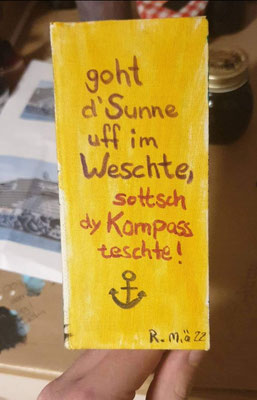 goht
d'Sunne
uff im
Weschte,
sottsch
dy Kompass
teschte!
R.M.ö 22